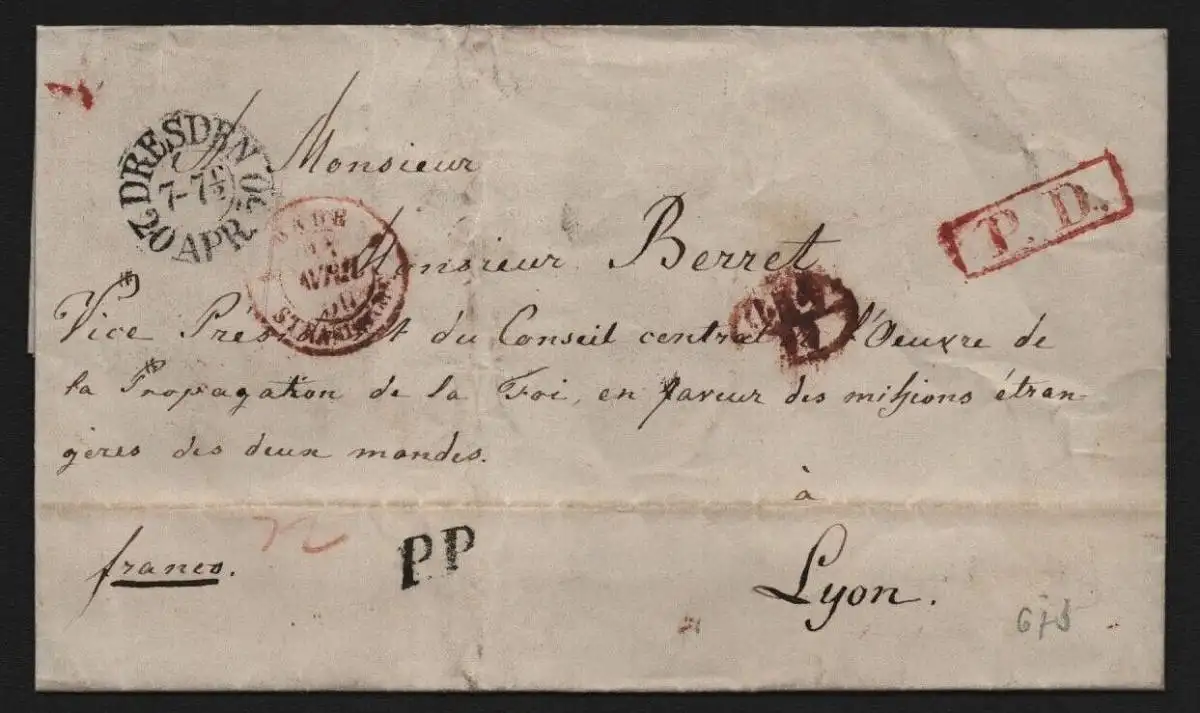 DRESDEN 50
7-7½
20 APR.
À Monsieur
BADE
AVRIL
50
STRASBOURG
Monsieur Berret
P.D.
Vice President du Conseil central de l'Oeuvre de
la Propagation de la Foi, en faveur des missions étran-
gères des deux mondes.
à
franco.
P.P
Lyon.
675